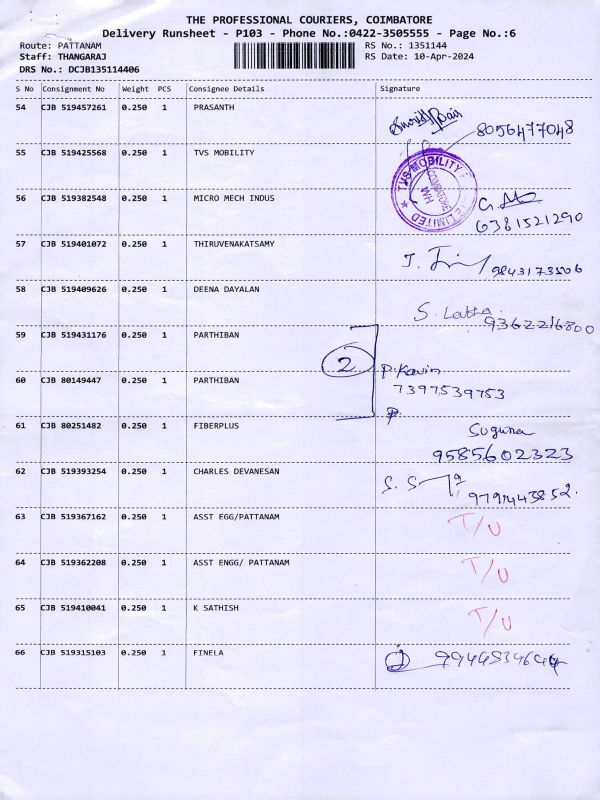 THE PROFESSIONAL COURIERS, COIMBATORE
Delivery Runsheet - P103 - Phone No.:0422-3505555 - Page No.:6
Route: PATTANAM RS No.: 1351144
Staff: THANGARAJ RS Date: 10-Apr-2024
DRS No.: DCJB135114406
S No Consignment No Weight PCS Consignee Details Signature
54 CJB 519457261 0.250 1 PRASANTH
8056477048
55 CJB 519425568 0.250 1 TVS MOBILITY
TVS MOBILITY LIMITED COIMBATORE WH
56 CJB 519382548 0.250 1 MICRO MECH INDUS
6381521290
57 CJB 519401072 0.250 1 THIRUVENAKATSAMY
9843173506
58 CJB 519409626 0.250 1 DEENA DAYALAN
S. Latha 9362216800
59 CJB 519431176 0.250 1 PARTHIBAN
2
60 CJB 80149447 0.250 1 PARTHIBAN P. Kavin
7397539753
61 CJB 80251482 0.250 1 FIBERPLUS Suguna
9585602323
62 CJB 519393254 0.250 1 CHARLES DEVANESAN
9791443852.
63 CJB 519367162 0.250 1 ASST EGG/PATTANAM T/U
64 CJB 519362208 0.250 1 ASST ENGG/ PATTANAM T/U
65 CJB 519410041 0.250 1 K SATHISH T/U
66 CJB 519315103 0.250 1 FINELA